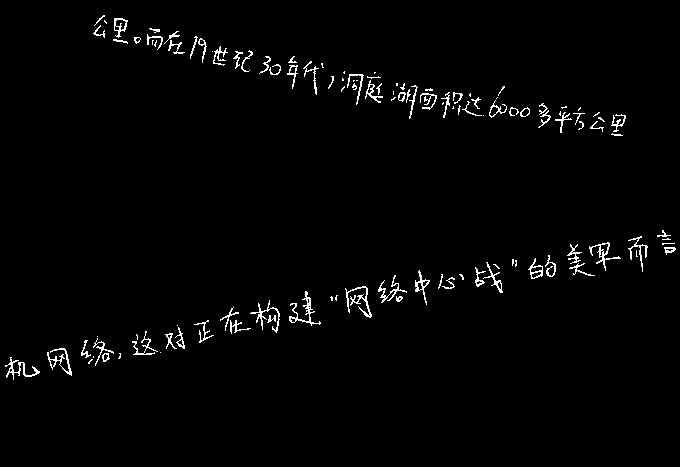 公里。而在19世纪30年代，洞庭湖面积达6000多平方公里
机网络，这对正在构建“网络中心战”的美军而言